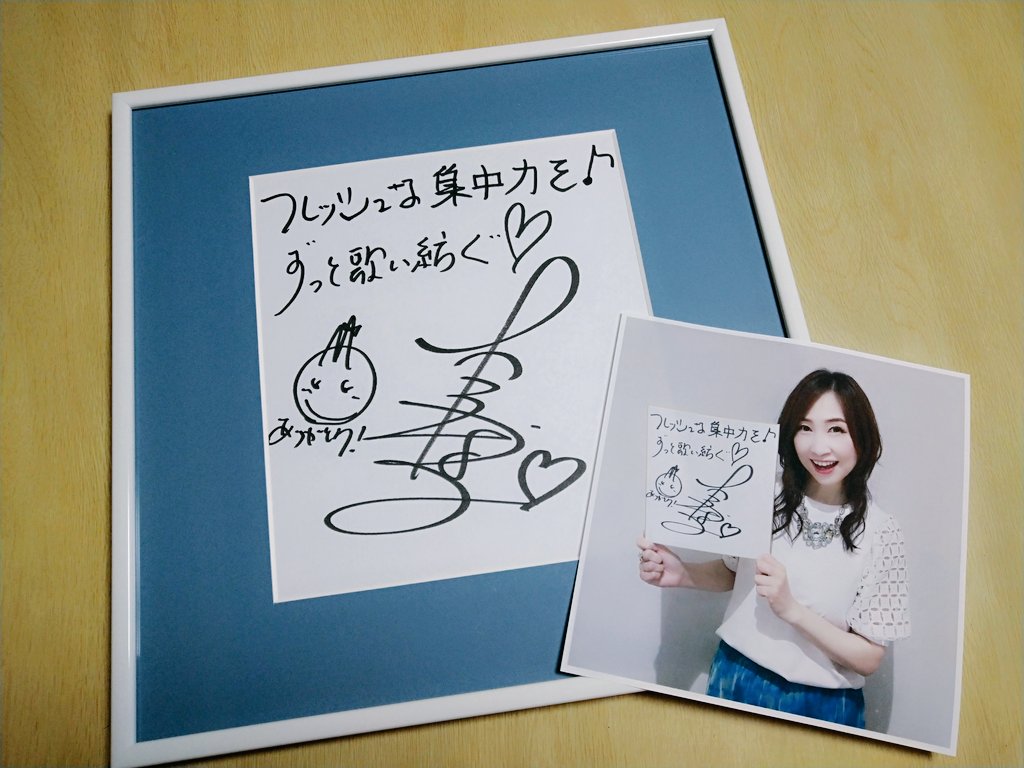 フレッシュな集中力を♪
ずっと歌い紡ぐ♡
ありがとう!
フレッシュな集中力を♪
ずっと歌い紡ぐ♡
ありがとう!